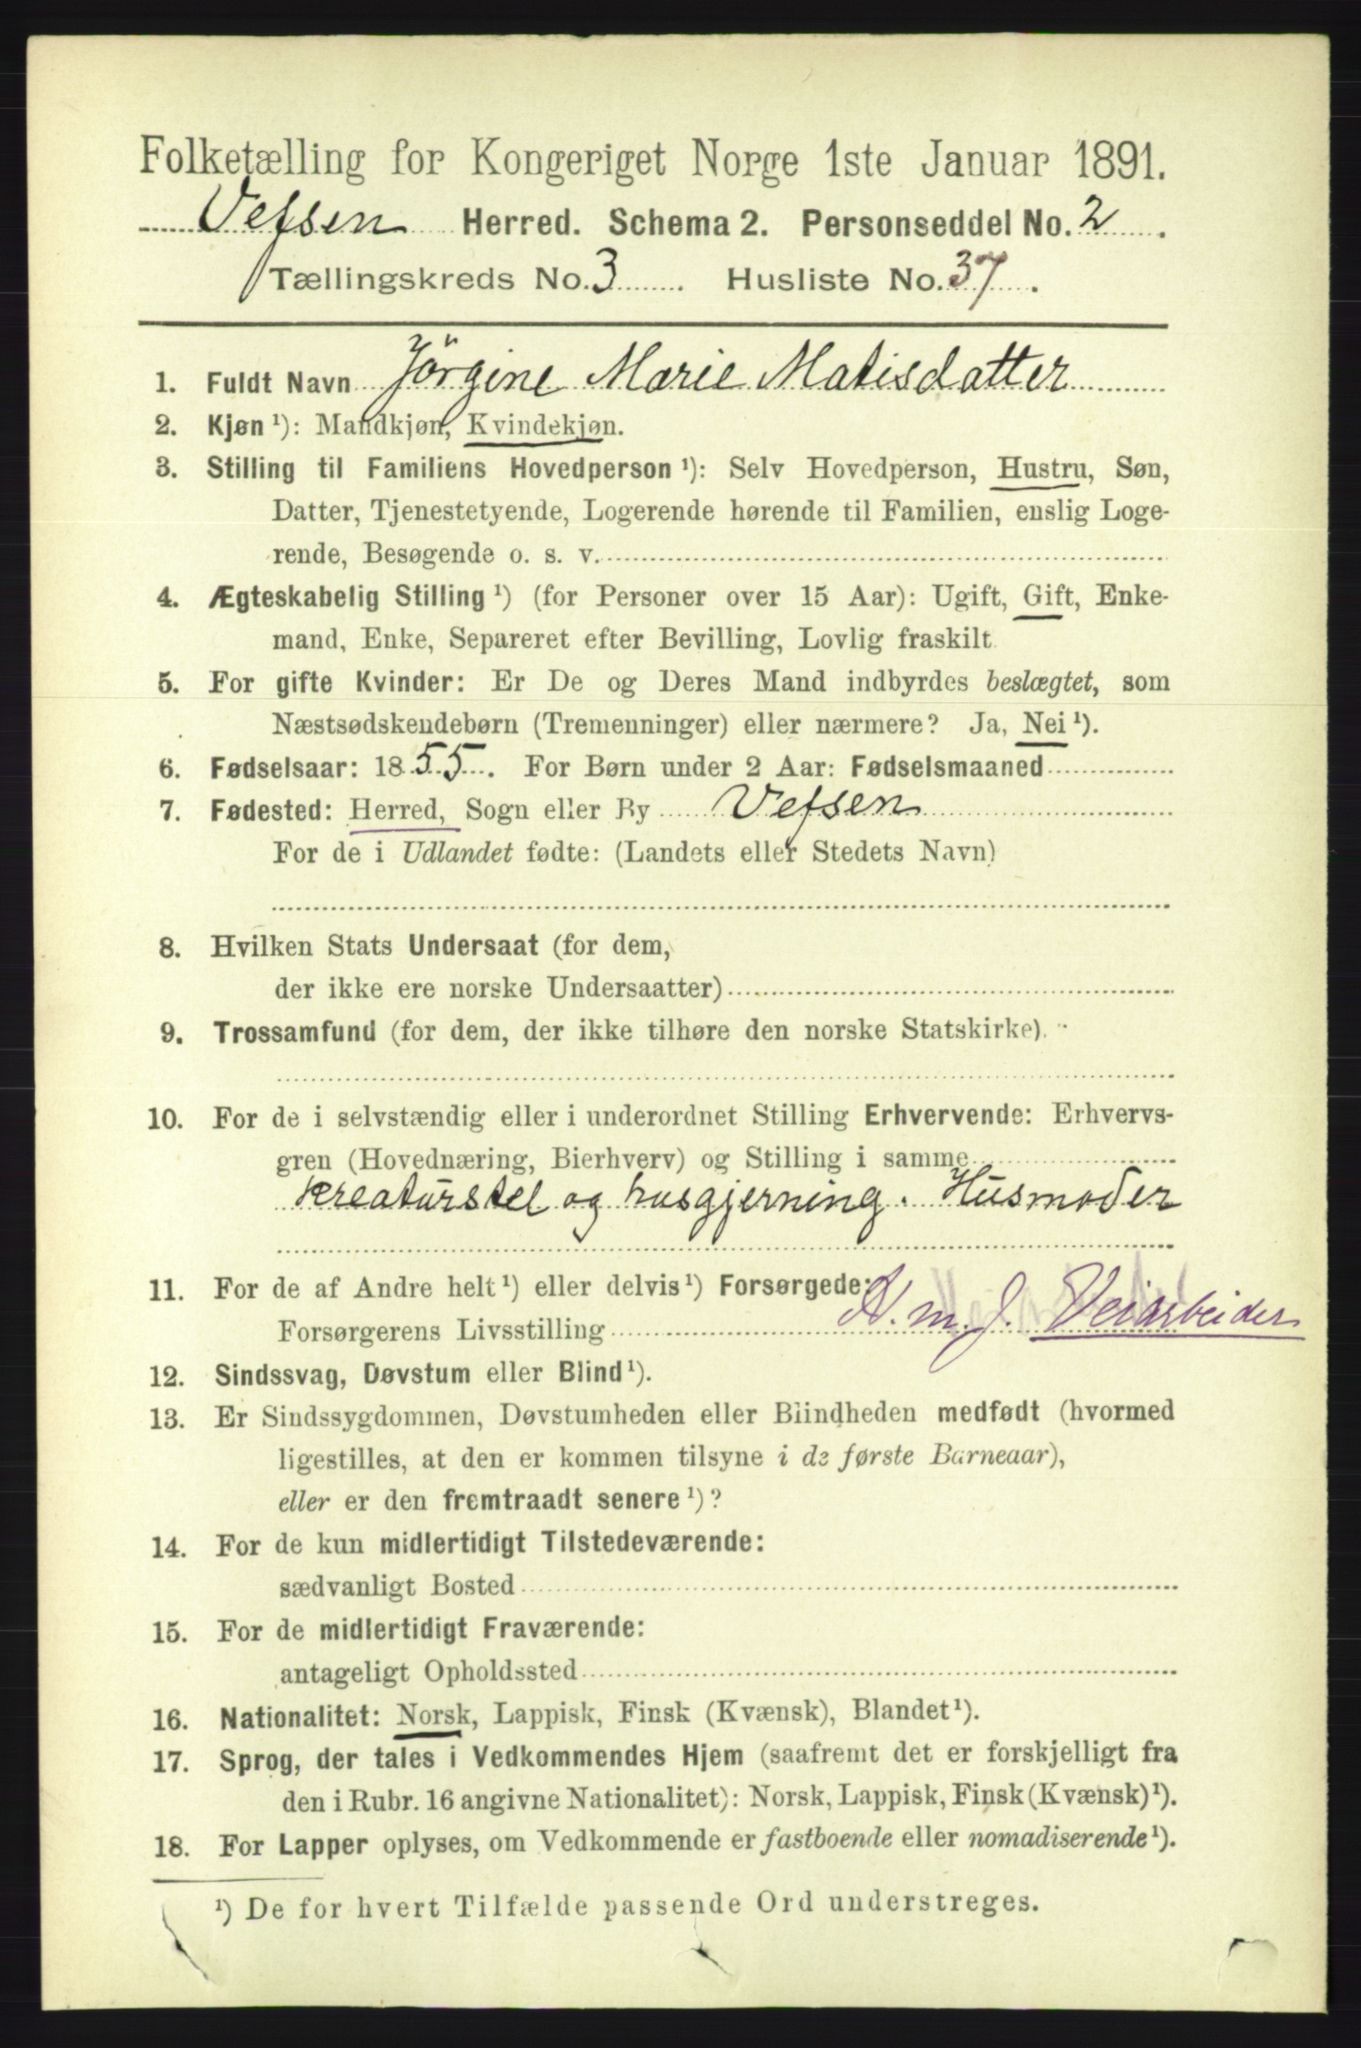 Folketælling for Kongeriget Norge 1ste Januar 1891.
Vefsen Herred. Schema 2. Personseddel No. 2.
Tællingskreds No. 3. Husliste No. 37.
1. Fuldt Navn Jörgine Marie Matisdatter
2. Kjøn ¹): Mandkjøn, Kvindekjøn.
3. Stilling til Familiens Hovedperson ¹): Selv Hovedperson, Hustru, Søn,
Datter, Tjenestetyende, Logerende hørende til Familien, enslig Loge-
rende, Besøgende o. s. v.
4. Ægteskabelig Stilling ¹) (for Personer over 15 Aar): Ugift, Gift, Enke-
mand, Enke, Separeret efter Bevilling, Lovlig fraskilt
5. For gifte Kvinder: Er De og Deres Mand indbyrdes beslægtet, som
Næstsødskendebørn (Tremenninger) eller nærmere? Ja, Nei ¹).
6. Fødselsaar: 1855. For Børn under 2 Aar: Fødselsmaaned
7. Fødested: Herred, Sogn eller By Vefsen
For de i Udlandet fødte: (Landets eller Stedets Navn)
8. Hvilken Stats Undersaat (for dem,
der ikke ere norske Undersaatter)
9. Trossamfund (for dem, der ikke tilhøre den norske Statskirke).
10. For de i selvstændig eller i underordnet Stilling Erhvervende: Erhvervs-
gren (Hovednæring, Bierhverv) og Stilling i samme
Kreaturstel og husgjerning. Husmoder
11. For de af Andre helt ¹) eller delvis ¹) Forsørgede:
Forsørgerens Livsstilling H. m. J. Veiarbeider
12. Sindssvag, Døvstum eller Blind ¹).
13. Er Sindssygdommen, Døvstumheden eller Blindheden medfødt (hvormed
ligestilles, at den er kommen tilsyne i de første Barneaar),
eller er den fremtraadt senere ¹)?
14. For de kun midlertidigt Tilstedeværende:
sædvanligt Bosted
15. For de midlertidigt Fraværende:
antageligt Opholdssted
16. Nationalitet: Norsk, Lappisk, Finsk (Kvænsk), Blandet ¹).
17. Sprog, der tales i Vedkommendes Hjem (saafremt det er forskjelligt fra
den i Rubr. 16 angivne Nationalitet): Norsk, Lappisk, Finsk (Kvænsk) ¹).
18. For Lapper oplyses, om Vedkommende er fastboende eller nomadiserende ¹).
¹) De for hvert Tilfælde passende Ord understreges.